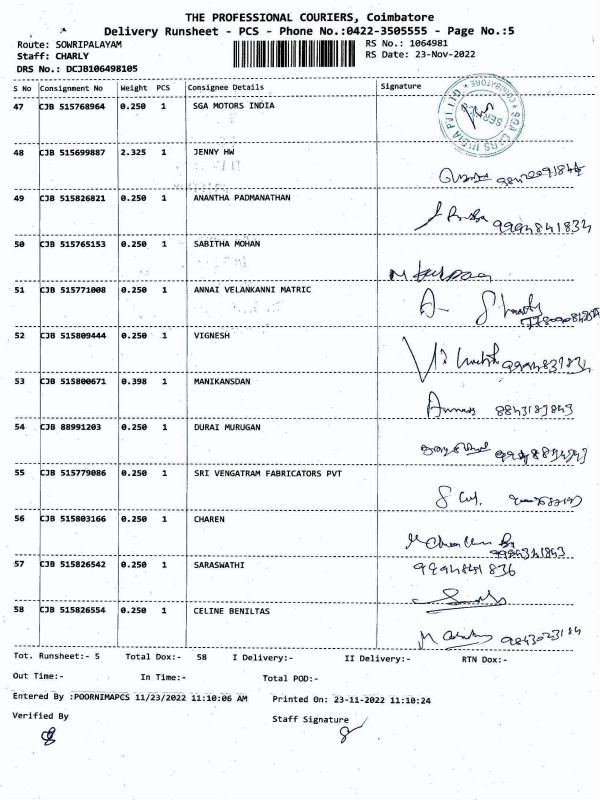 THE PROFESSIONAL COURIERS, Coimbatore
Delivery Runsheet - PCS - Phone No.:0422-3505555 - Page No.:5
Route: SOWRIPALAYAM RS No.: 1064981
Staff: CHARLY RS Date: 23-Nov-2022
DRS No.: DCJB106498105
S No Consignment No Weight PCS Consignee Details Signature
47 CJB 515768964 0.250 1 SGA MOTORS INDIA
48 CJB 515699887 2.325 1 JENNY HW
49 CJB 515826821 0.250 1 ANANTHA PADMANATHAN
50 CJB 515765153 0.250 1 SABITHA MOHAN
51 CJB 515771008 0.250 1 ANNAI VELANKANNI MATRIC
52 CJB 515809444 0.250 1 VIGNESH
53 CJB 515800671 0.398 1 MANIKANSDAN
54 CJB 88991203 0.250 1 DURAI MURUGAN
55 CJB 515779086 0.250 1 SRI VENGATRAM FABRICATORS PVT
56 CJB 515803166 0.250 1 CHAREN
57 CJB 515826542 0.250 1 SARASWATHI
58 CJB 515826554 0.250 1 CELINE BENILTAS
Tot. Runsheet:- 5 Total Dox:- 58 I Delivery:- II Delivery:- RTN Dox:-
Out Time:- In Time:- Total POD:-
Entered By :POORNIMAPCS 11/23/2022 11:10:06 AM Printed On: 23-11-2022 11:10:24
Verified By Staff Signature